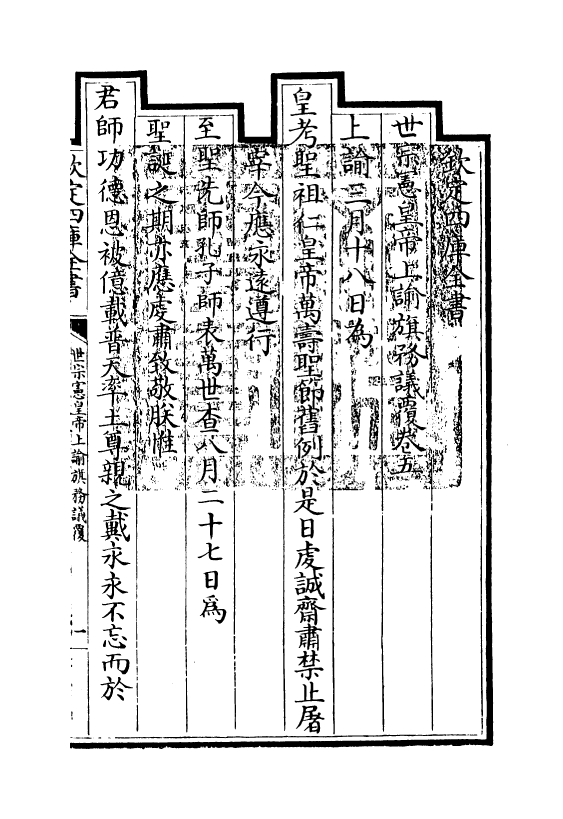 欽定四庫全書
世宗憲皇帝上諭旗務議覆卷五
上諭三月十八日為
皇考聖祖仁皇帝萬壽聖節舊例於是日䖍誠齋肅禁止屠
宰今應永遠遵行
至聖先師孔子師表萬世查八月二十七日為
聖誕之期亦應䖍肅致敬朕惟
君師功德恩被億載普天率土尊親之戴永永不忘而於
欽定四庫全書
世宗憲皇帝上諭旗務議覆
一